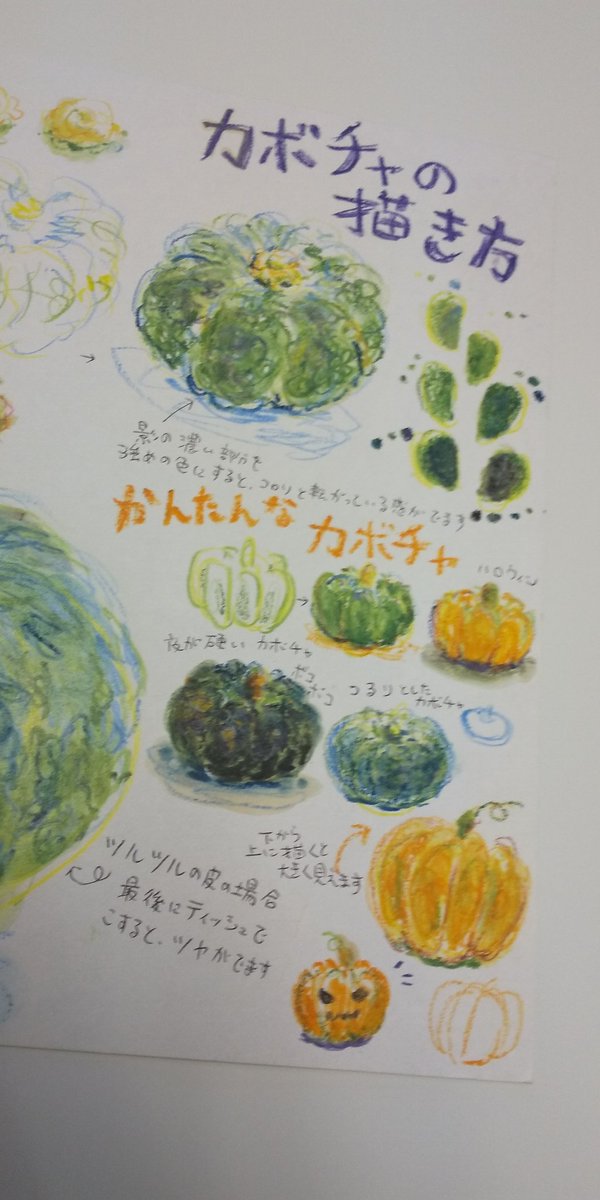 カボチャの
描き方
影の濃い部分を
強めの色にすると、コロリと転がっている感がでます
かんたんな
カボチャ
ハロウィン
皮が硬い カボチャ
ボコ
ボコ
つるりとした
カボチャ
下から
上に描くと
大きく見えます
ツルツルの皮の場合
最後にティッシュで
こすると、ツヤがでます